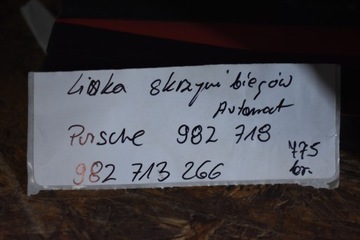 Linka skrzyni biegów
Automat
Porsche 982 718
982 713 266
775
br.